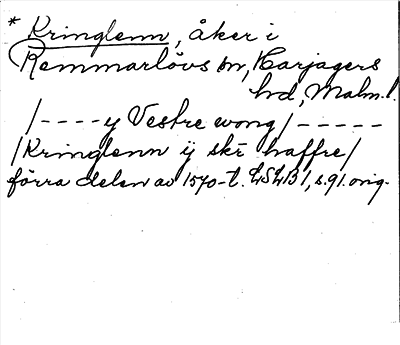 * Kringlenn, åker i
Remmarlövs sn, Harjagers
hd, Malm. l.
/ - - - - y Vestre wong / - - - - -
/ Kringlenn ij skr haffre /
förra delen av 1570-t. LSLB 1, s. 91. orig.